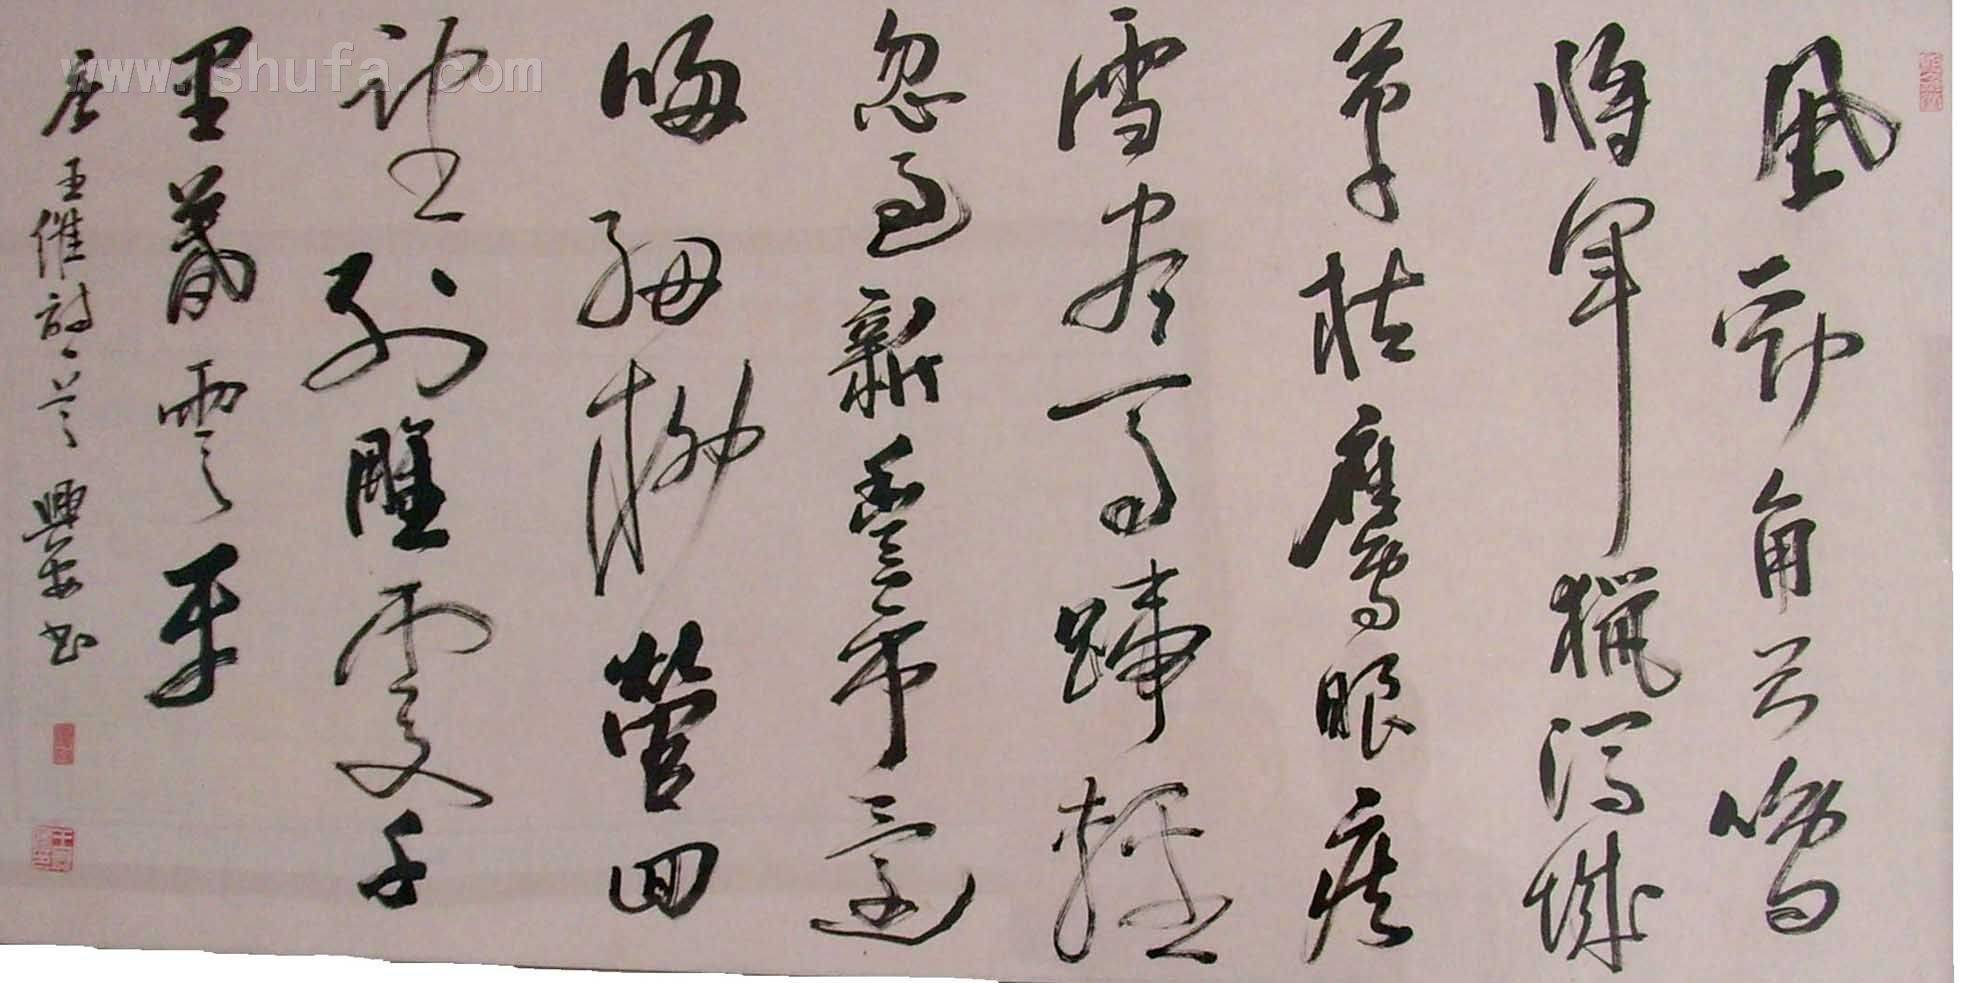 風勁角弓鳴
將軍獵渭城
草枯鷹眼疾
雪尽馬蹄輕
忽過新豐市還
歸細柳營回
望射雕處千
里暮雲平
唐王維詩一首 興安書
www.shufa.com